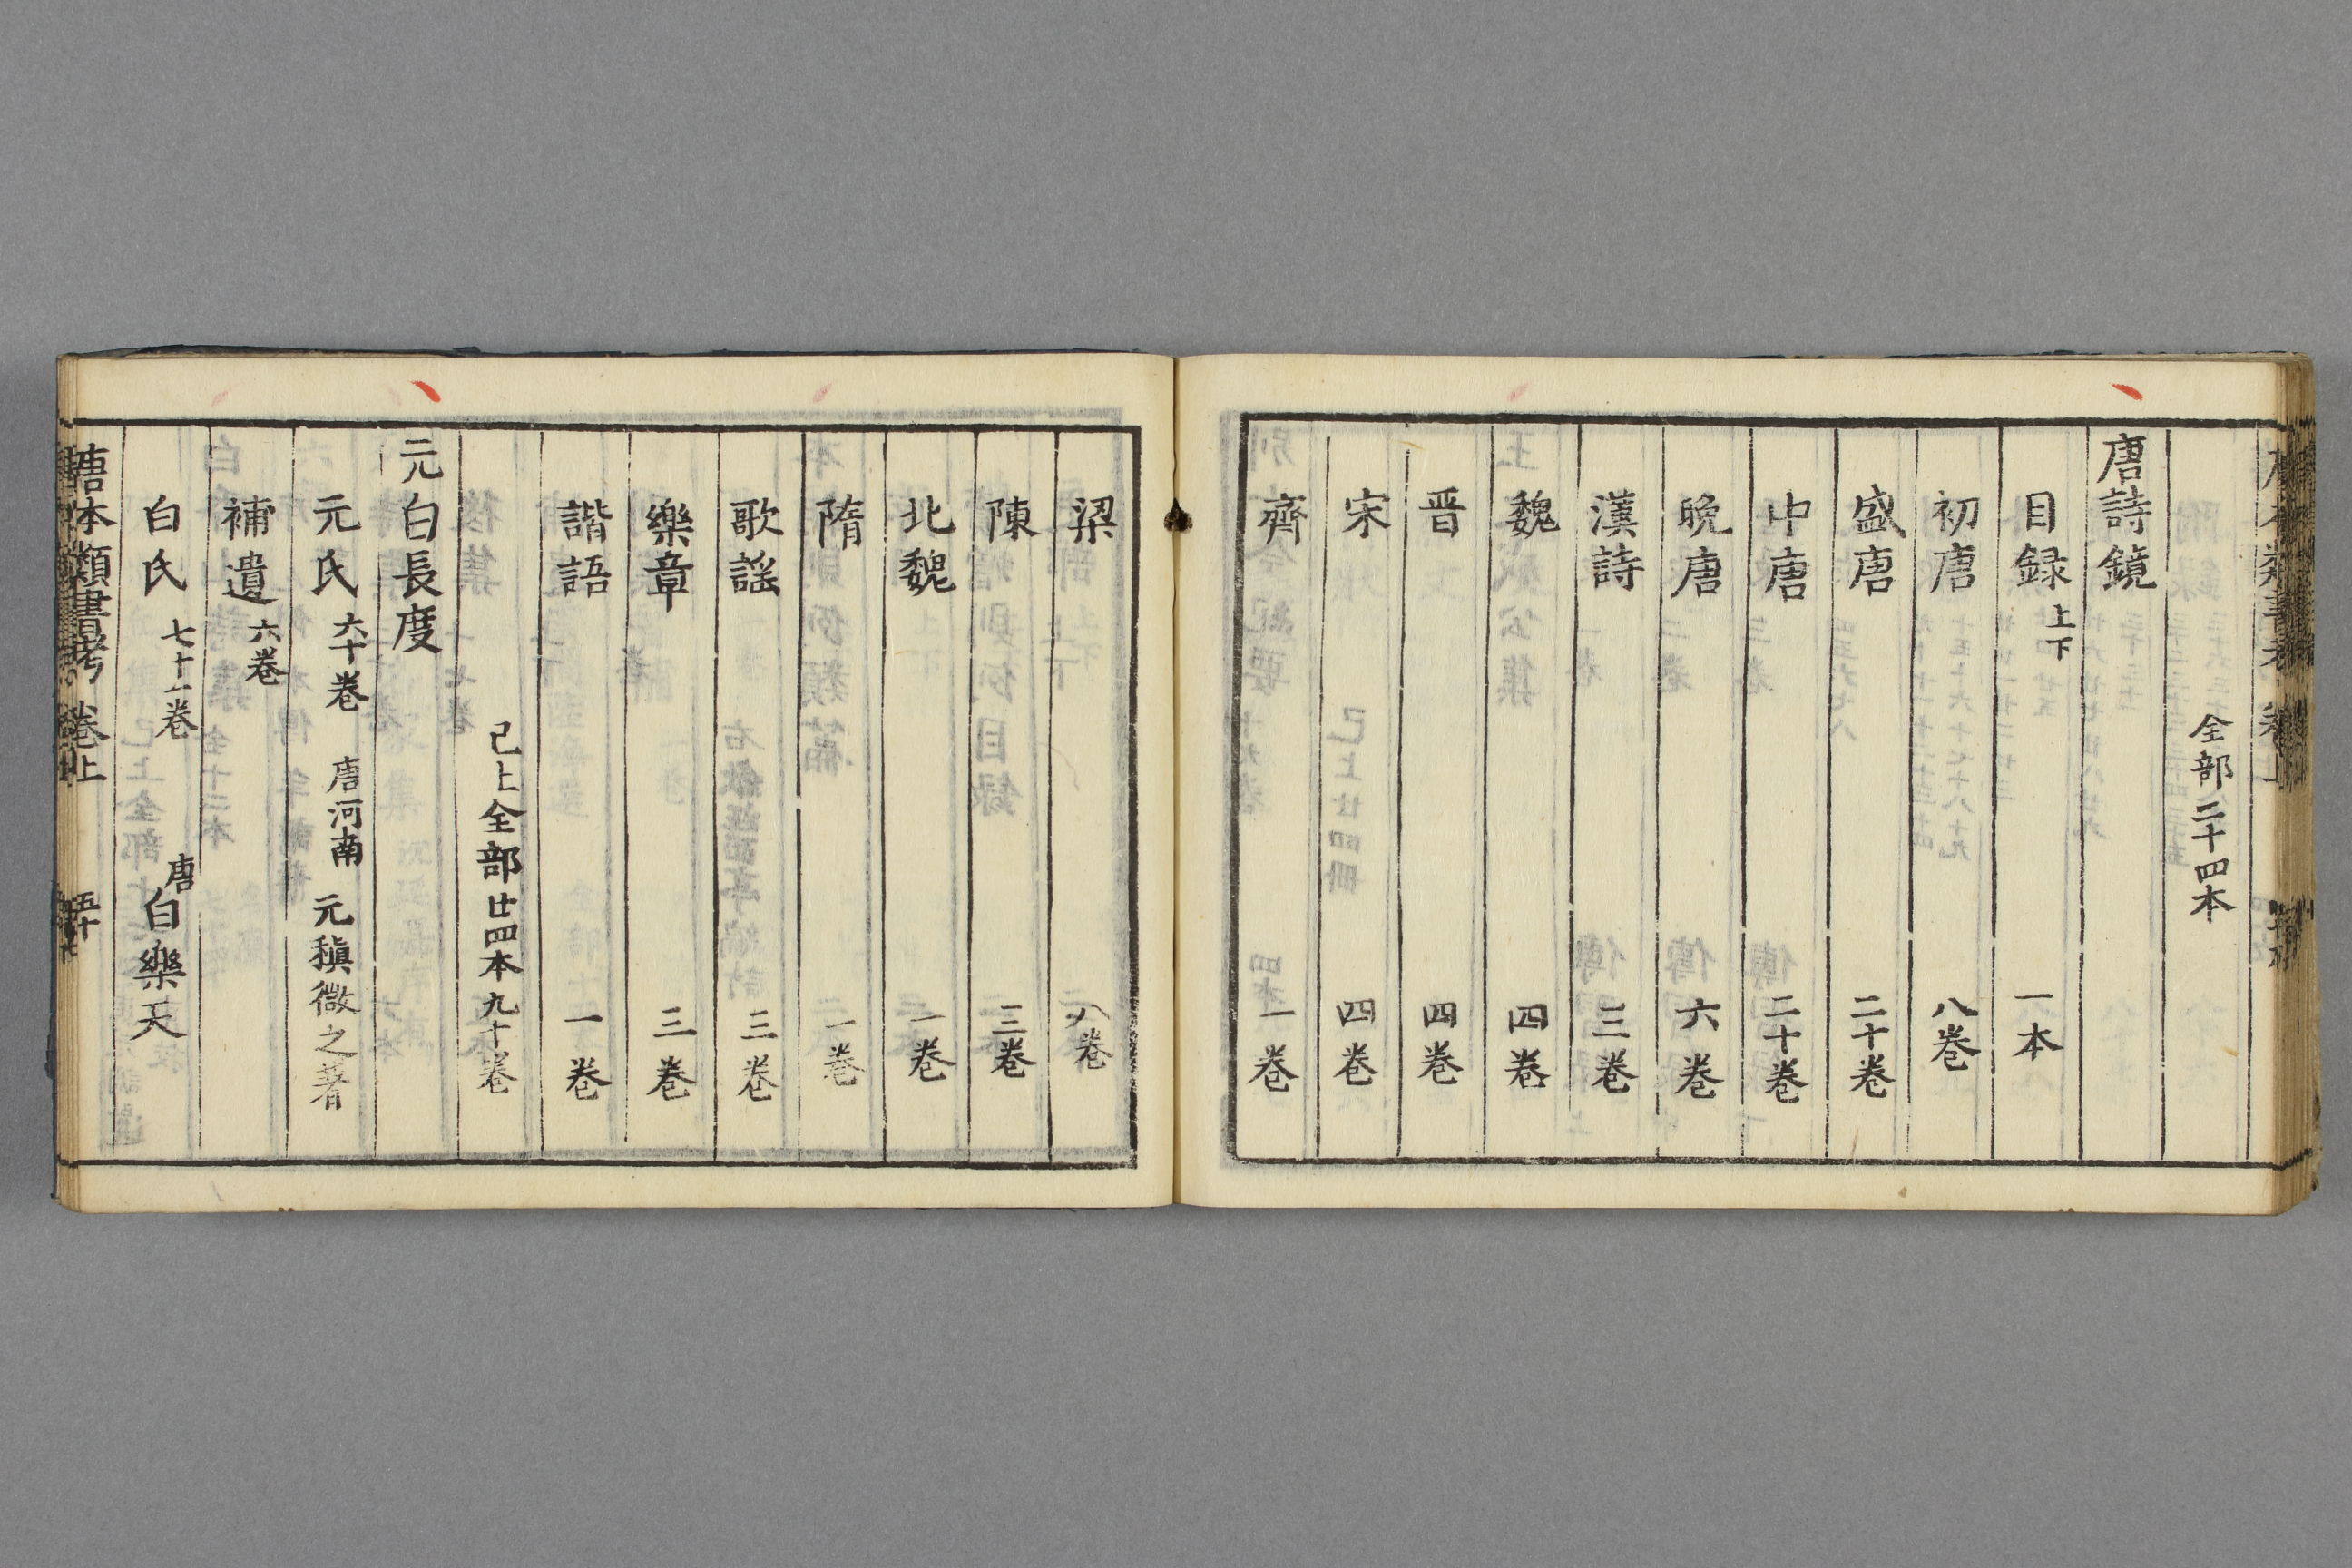 全部二十四本
唐詩鏡
目録 上下 一本
初唐 八巻
盛唐 二十巻
中唐 二十巻
晩唐 六巻
漢詩 三巻
魏 四巻
晋 四巻
宋 四巻
齊 一巻
梁 八巻
陳 三巻
北魏 一巻
隋 一巻
歌謡 三巻
樂章 三巻
諧語 一巻
已上全部廿四本九十巻
元白長慶
元氏 六十巻 唐河南 元稹微之著
補遺 六巻
白氏 七十一巻 唐白樂天
唐本類書考 巻上